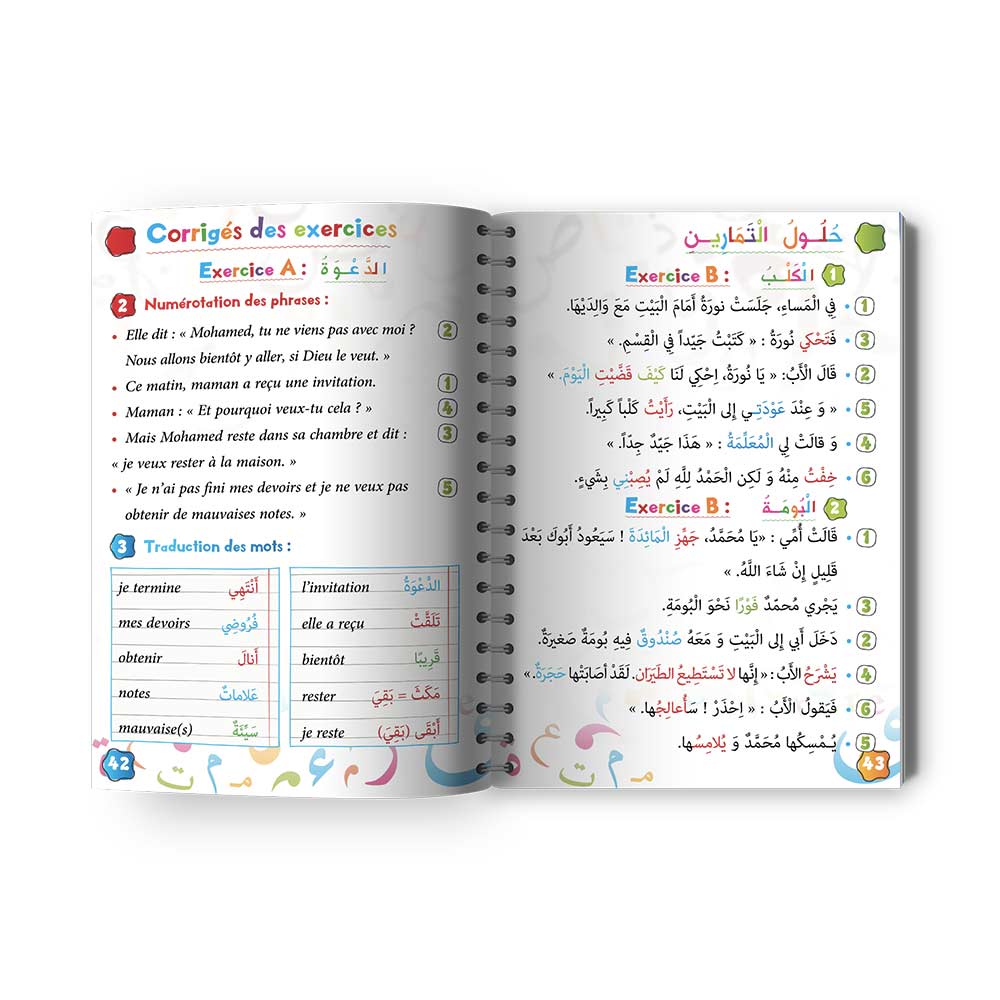 Corrigés des exercices
Exercice A : الدَّعْوَةُ
2 Numérotation des phrases :
• Elle dit : « Mohamed, tu ne viens pas avec moi ? 2
Nous allons bientôt y aller, si Dieu le veut. »
• Ce matin, maman a reçu une invitation. 1
• Maman : « Et pourquoi veux-tu cela ? » 4
• Mais Mohamed reste dans sa chambre et dit : 3
« je veux rester à la maison. »
• « Je n'ai pas fini mes devoirs et je ne veux pas 5
obtenir de mauvaises notes. »
3 Traduction des mots :
je termine أَنْتَهِي
mes devoirs فُرُوضِي
obtenir أَنالَ
notes عَلاماتٌ
mauvaise(s) سَيِّئَةٌ
l'invitation الدَّعْوَةُ
elle a reçu تَلَقَّتْ
bientôt قَرِيبًا
rester مَكَثَ = بَقِيَ
je reste أَبْقَى (بَقِيَ)
42
حُلُولُ الْتَمَارِينِ
1 الْكَلْبُ Exercice B :
1 • فِي الْمَساءِ، جَلَسَتْ نورَةُ أَمَامَ الْبَيْتِ مَعَ وَالِدَيْهَا.
3 • فَتَحْكِي نُورَةُ : « كَتَبْتُ جَيِّداً فِي الْقِسْمِ. »
2 • قَالَ الْأَبُ: « يَا نُورَةُ، اِحْكِي لَنَا كَيْفَ قَضَّيْتِ الْيَوْمَ. »
5 • « وَ عِنْدَ عَوْدَتِي إِلى الْبَيْتِ، رَأَيْتُ كَلْباً كَبِيراً.
4 • وَ قالَتْ لِي الْمُعَلِّمَةُ : « هَذَا جَيِّدٌ جِدّاً. »
6 • خِفْتُ مِنْهُ وَ لَكِن الْحَمْدُ لِلَّهِ لَمْ يُصِبْنِي بِشَيءٍ.
2 الْبُومَةُ Exercice B :
1 • قَالَتْ أُمِّي : «يَا مُحَمَّدُ، جَهِّزِ الْمَائِدَةَ ! سَيَعُودُ أَبُوكَ بَعْدَ
قَلِيلٍ إِنْ شَاءَ اللَّهُ. »
3 • يَجْرِي مُحمّدٌ فَوْرًا نَحْوَ الْبُومَةِ.
2 • دَخَلَ أَبي إِلى الْبَيْتِ وَ مَعَهُ صُنْدُوقٌ فِيهِ بُومَةٌ صَغيرَةٌ.
4 • يَشْرَحُ الأَبُ: « إِنَّها لا تَسْتَطِيعُ الطيَرَان. لَقَدْ أصَابَتْها حَجَرَةٌ.»
6 • فَيَقولُ الْأَبُ : « اِحْذَرْ ! سَأُعالِجُها. »
5 • يُـمْسِكُها مُحَمَّدٌ وَ يُلامِسُها.
43